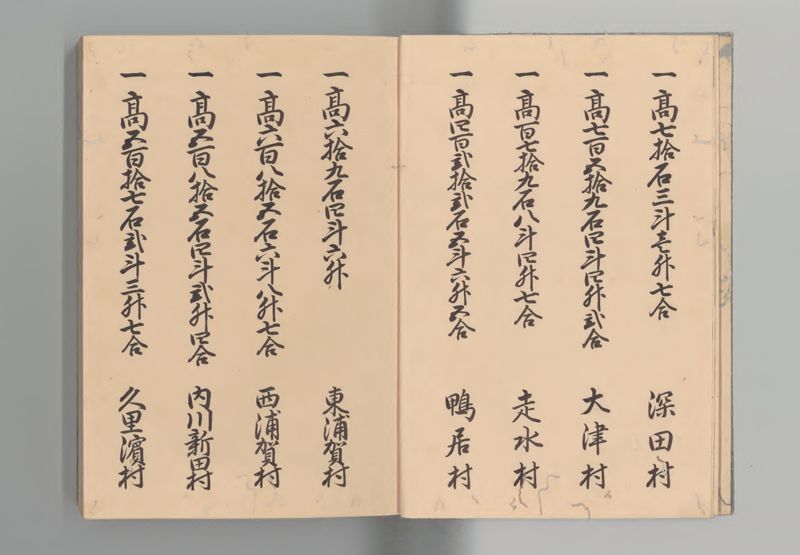 一髙七拾石三斗壱升七合 深田村
一髙七百五拾九石四斗四升弐合 大津村
一髙百七拾九石八斗四升七合 走水村
一髙四百弐拾弐石五斗六升五合 鴨居村
一髙六拾九石四斗六升 東浦賀村
一髙六百八拾五石六斗八升七合 西浦賀村
一髙五百八拾五石四斗弐升四合 内川新田村
一髙五百拾七石弐斗三升七合 久里濱村